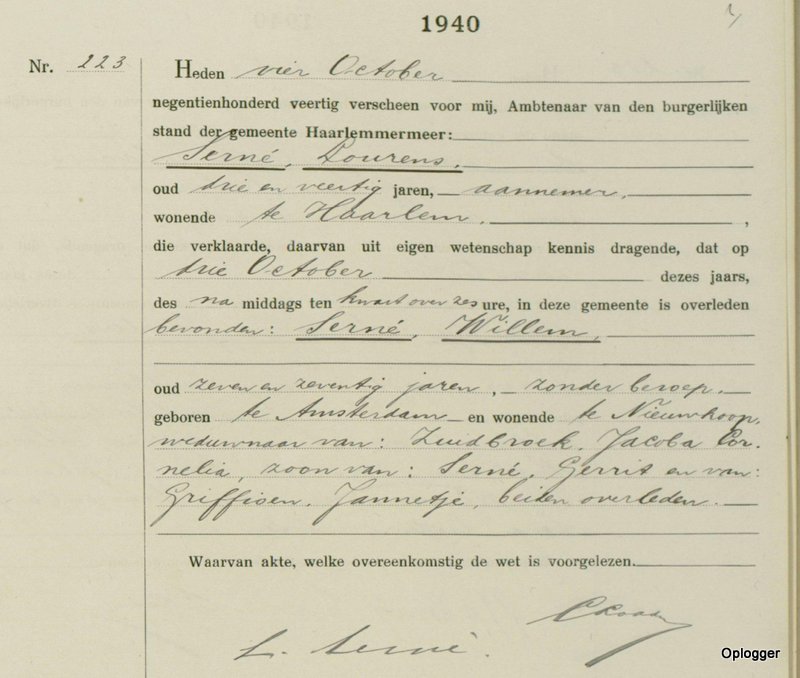 1940
Nr. 223
Heden vier October
negentienhonderd veertig verscheen voor mij, Ambtenaar van den burgerlijken
stand der gemeente Haarlemmermeer:
Serné, Lourens,
oud drie en veertig jaren, aannemer,
wonende te Haarlem,
die verklaarde, daarvan uit eigen wetenschap kennis dragende, dat op
drie October dezes jaars,
des na middags ten kwart over zes ure, in deze gemeente is overleden
bevonden: Serné, Willem,
oud zeven en zeventig jaren, zonder beroep,
geboren te Amsterdam en wonende te Nieuwkoop,
weduwnaar van: Zuidbroek, Jacoba Cor-
nelia, zoon van: Serné, Gerrit en van:
Griffioen, Jannetje, beiden overleden.
Waarvan akte, welke overeenkomstig de wet is voorgelezen.
L. Serné.
Oplogger